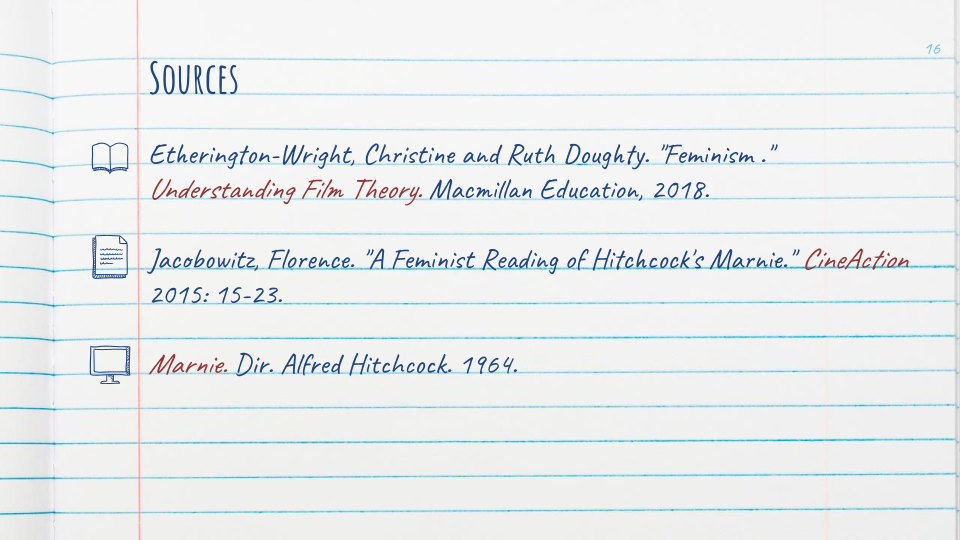 16
Sources
Etherington-Wright, Christine and Ruth Doughty. "Feminism ."
Understanding Film Theory. Macmillan Education, 2018.
Jacobowitz, Florence. "A Feminist Reading of Hitchcock's Marnie." CineAction
2015: 15-23.
Marnie. Dir. Alfred Hitchcock. 1964.